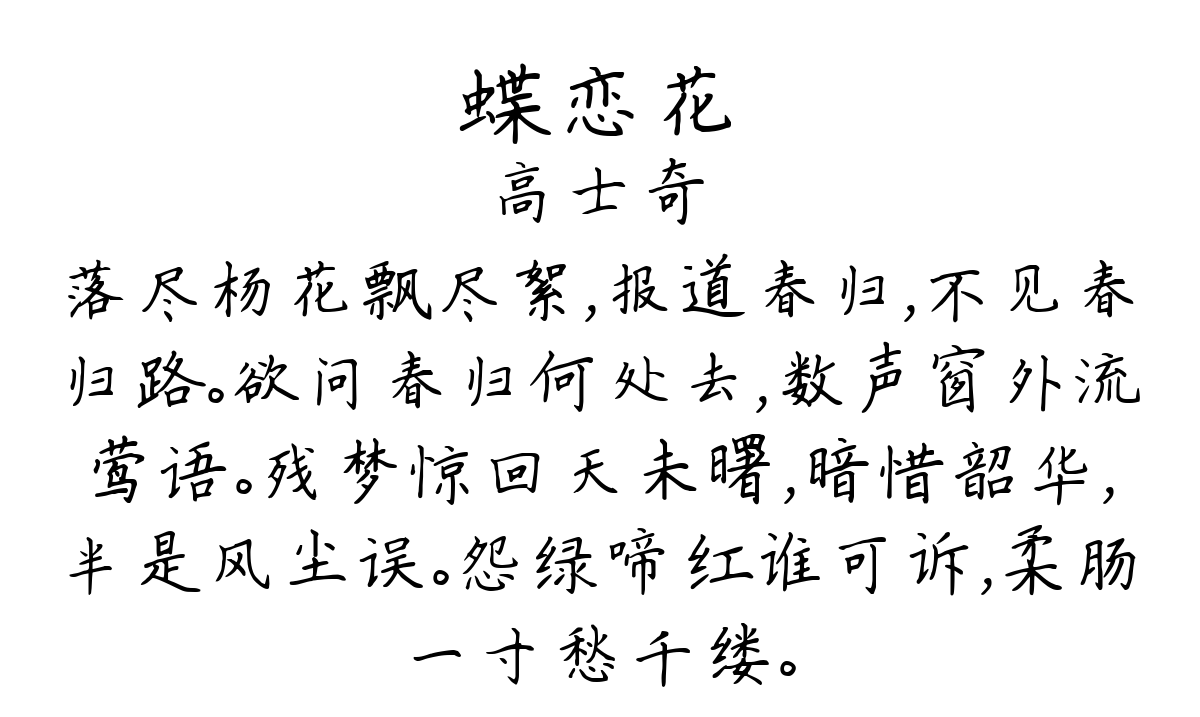 蝶恋花
高士奇
落尽杨花飘尽絮,报道春归,不见春
归路。欲问春归何处去,数声窗外流
莺语。残梦惊回天未曙,暗惜韶华,
半是风尘误。怨绿啼红谁可诉,柔肠
一寸愁千缕。